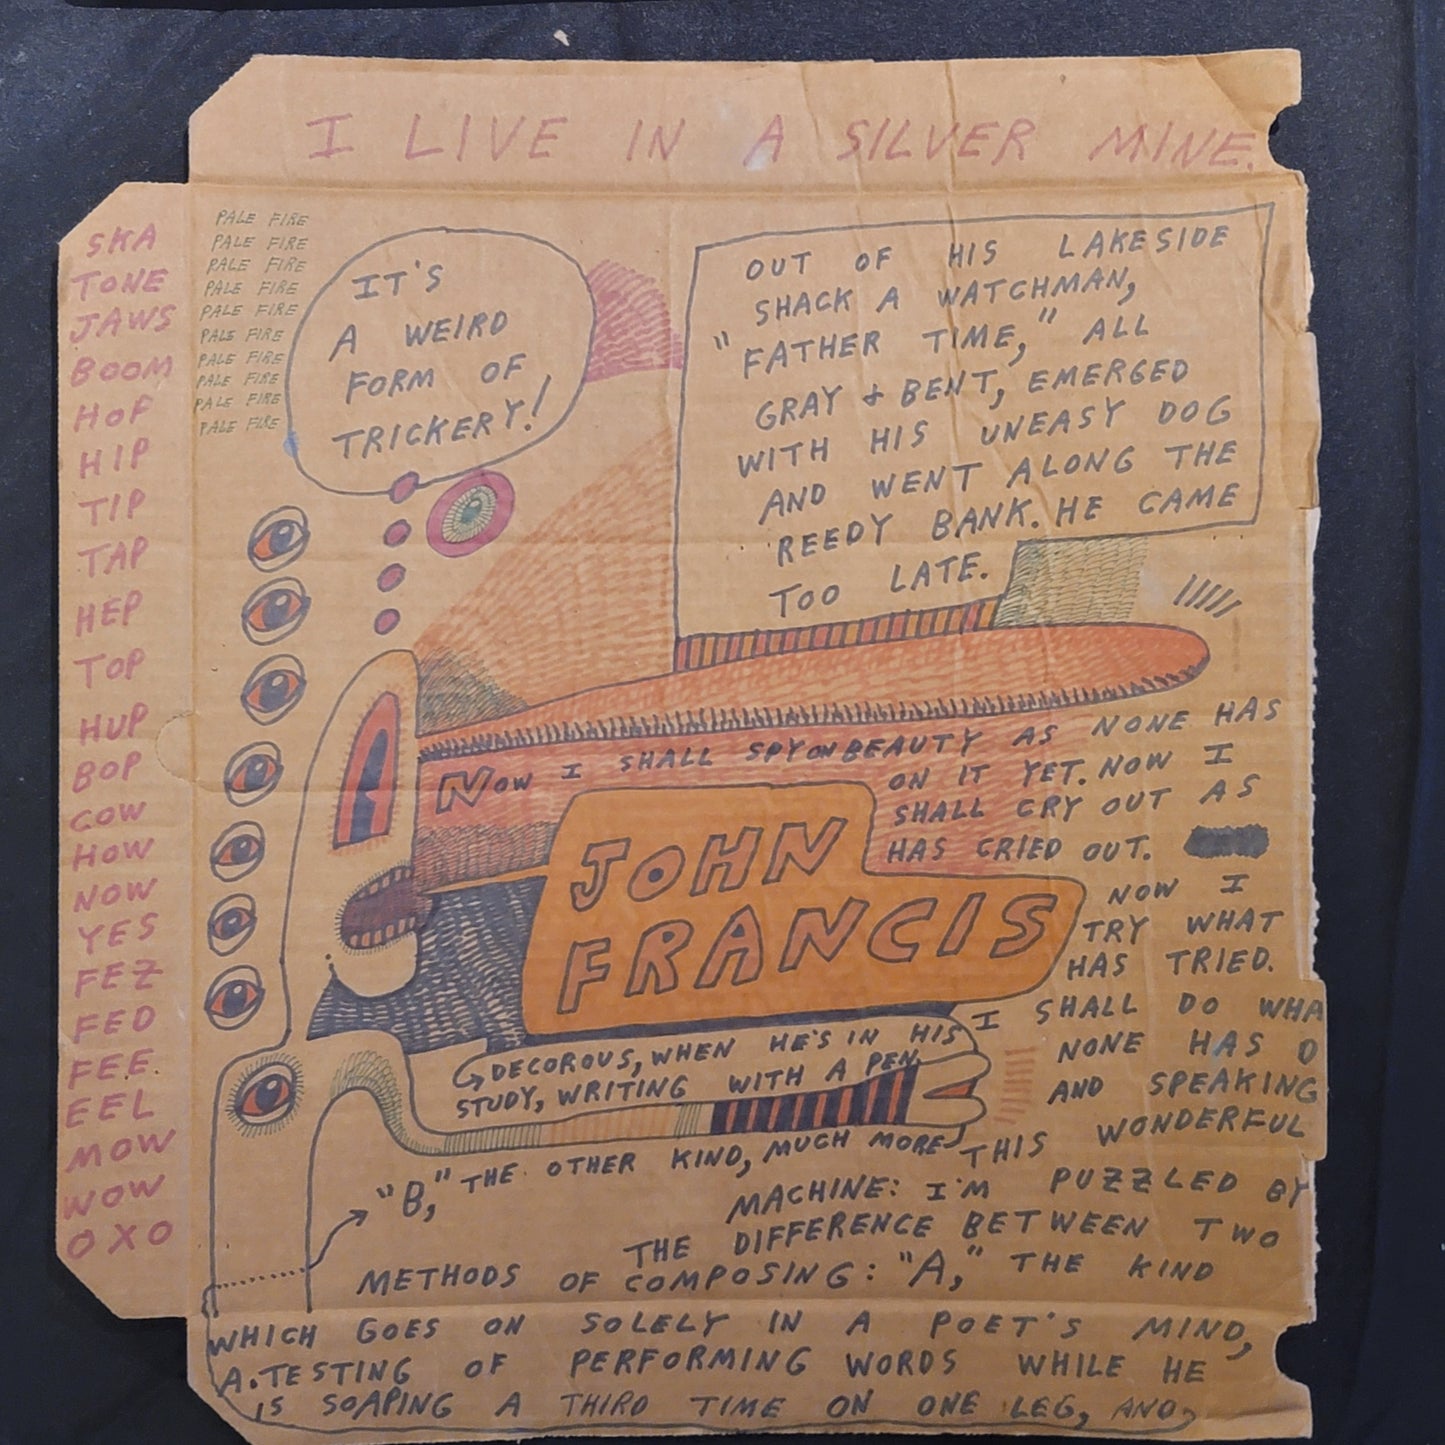 I LIVE IN A SILVER MINE.
SKA
TONE
JAWS
BOOM
HOF
HIP
TIP
TAP
HEP
TOP
HUP
BOP
COW
HOW
NOW
YES
FEZ
FED
FEE.
EEL
MOW
WOW
OXO
PALE FIRE
PALE FIRE
PALE FIRE
PALE FIRE
PALE FIRE
PALE FIRE
PALE FIRE
PALE FIRE
PALE FIRE
PALE FIRE
IT'S
A WEIRD
FORM OF
TRICKERY!
OUT OF HIS LAKESIDE
SHACK A WATCHMAN,
"FATHER TIME," ALL
GRAY & BENT, EMERGED
WITH HIS UNEASY DOG
AND WENT ALONG THE
REEDY BANK. HE CAME
TOO LATE.
NOW I SHALL SPY ON BEAUTY AS NONE HAS
ON IT YET. NOW I
SHALL CRY OUT AS
HAS CRIED OUT.
NOW I
TRY WHAT
HAS TRIED.
I SHALL DO WHA
NONE HAS D
AND SPEAKING
THIS WONDERFUL
MACHINE: I'M PUZZLED BY
THE DIFFERENCE BETWEEN TWO
METHODS OF COMPOSING: "A," THE KIND
WHICH GOES ON SOLELY IN A POET'S MIND,
A.TESTING OF PERFORMING WORDS WHILE HE
IS SOAPING A THIRD TIME ON ONE LEG, AND,
"B," THE OTHER KIND, MUCH MORE
DECOROUS, WHEN HE'S IN HIS
STUDY, WRITING WITH A PEN.
JOHN
FRANCIS